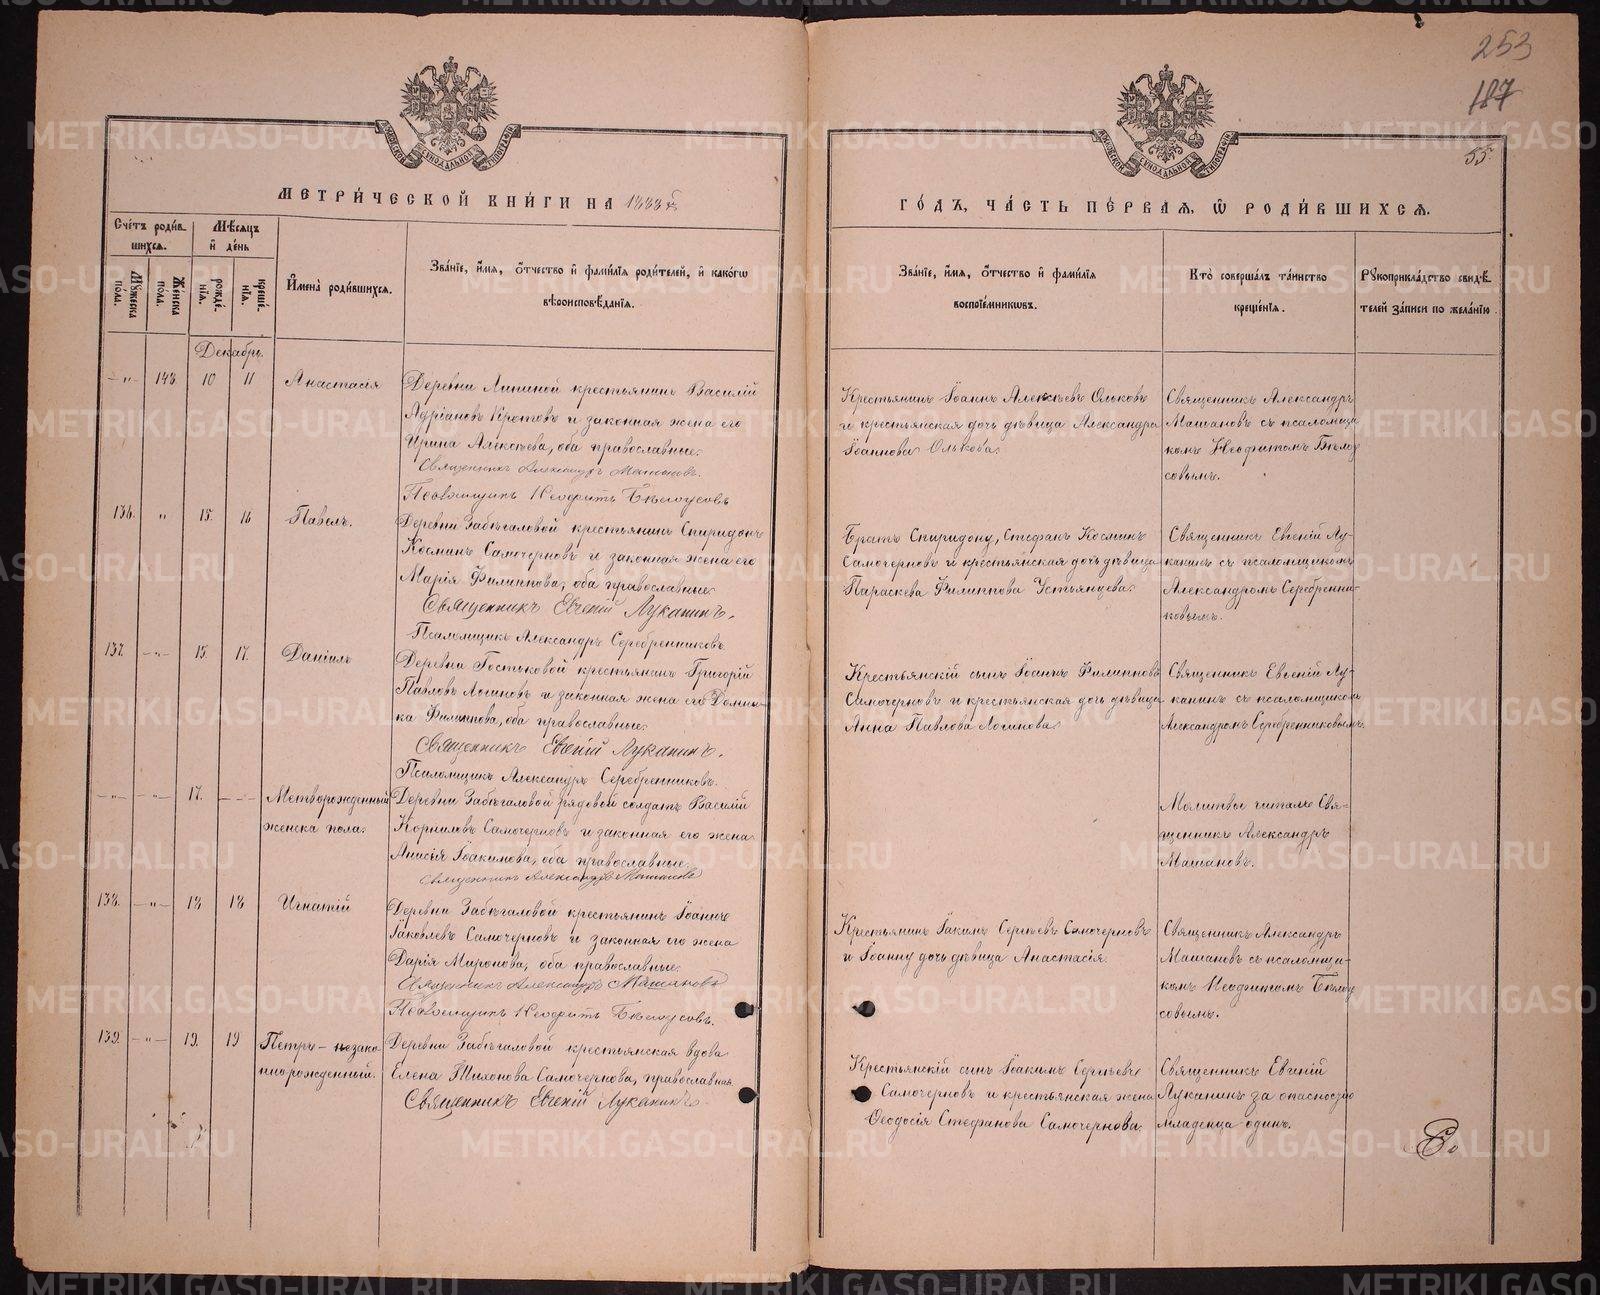 253
187
55
МЕТРИЧЕСКОЙ КНИГИ НА 1888 й
ГОДЪ, ЧАСТЬ ПЕРВАЯ, Ѿ РОДИВШИХСЯ.
Счетъ родив-
шихся.
Мѣсяцъ
и день
Мужеска
пола.
Женска
пола.
рожде-
нія.
креще-
нія.
Имена родившихся.
Званіе, имя, отчество и фамилія родителей, и какогѡ
вѣроисповѣданія.
Званіе, имя, отчество и фамилія
воспріемниковъ.
Кто совершалъ таинство
крещенія.
Рукоприкладство свидѣ-
телей записи по желанію
Декабрь.
—„— 148. 10 11 Анастасія
Деревни Липиной крестьянинъ Василій
Адріановъ Кротовъ и законная жена его
Ирина Алексѣева, оба православные.
Священникъ Александръ Машановъ.
Псаломщикъ Неофитъ Бѣлоусовъ
Крестьянинъ Іоаннъ Алексѣевъ Ольковъ
и крестьянская дочь дѣвица Александра
Іоаннова Олькова.
Священникъ Александръ
Машановъ съ псаломщи-
комъ Неофитомъ Бѣлоу
совымъ.
136. „ 15. 16 Павелъ.
Деревни Забѣгаловой крестьянинъ Спиридонъ
Косминъ Самочерновъ и законная жена его
Марія Филиппова, оба православные.
Священникъ Евгеній Луканинъ.
Псаломщикъ Александръ Серебренниковъ.
Братъ Спиридону, Стефанъ Косминъ
Самочерновъ и крестьянская дочь дѣвица
Параскева Филиппова Устьянцева.
Священникъ Евгеній Лу-
канинъ съ псаломщикомъ
Александромъ Серебренни-
ковымъ.
137. —„— 15. 17. Даніилъ
Деревни Гостьковой крестьянинъ Григорій
Павловъ Логиновъ и законная жена его Домни-
ка Филиппова, оба православные.
Священникъ Евгеній Луканинъ.
Псаломщикъ Александръ Серебренниковъ.
Крестьянскій сынъ Іоаннъ Филипповъ
Самочерновъ и крестьянская дочь дѣвица
Анна Павлова Логинова.
Священникъ Евгеній Лу-
канинъ съ псаломщикомъ
Александромъ Серебренниковымъ.
—„— —„— 17. —„— Метворожденный
женска пола.
Деревни Забѣгаловой рядовой солдатъ Василій
Корниловъ Самочерновъ и законная его жена
Анисія Іоакимова, оба православные.
Священникъ Александръ Машановъ
Молитвы читалъ Свя-
щенникъ Александръ
Машановъ.
138. —„— 18 18 Игнатій
Деревни Забѣгаловой крестьянинъ Іоаннъ
Іаковлевъ Самочерновъ и законная его жена
Дарія Миронова, оба православные.
Священникъ Александръ Машановъ
Псаломщикъ Неофитъ Бѣлоусовъ.
Крестьянинъ Іакимъ Сергѣевъ Самочерновъ
и Іоанну дочь дѣвица Анастасія.
Священникъ Александръ
Машановъ съ псаломщи-
комъ Неофитомъ Бѣлоу
совымъ.
139. —„— 19. 19 Петръ – незако
ннорожденный.
Деревни Забѣгаловой крестьянская вдова
Елена Тихонова Самочернова, православная
Священникъ Евгеній Луканинъ.
Крестьянскій сынъ Іоакимъ Сергѣевъ
Самочерновъ и крестьянская жена
Ѳеодосія Стефанова Самочернова.
Священникъ Евгеній
Луканинъ за опасностію
младенца одинъ.